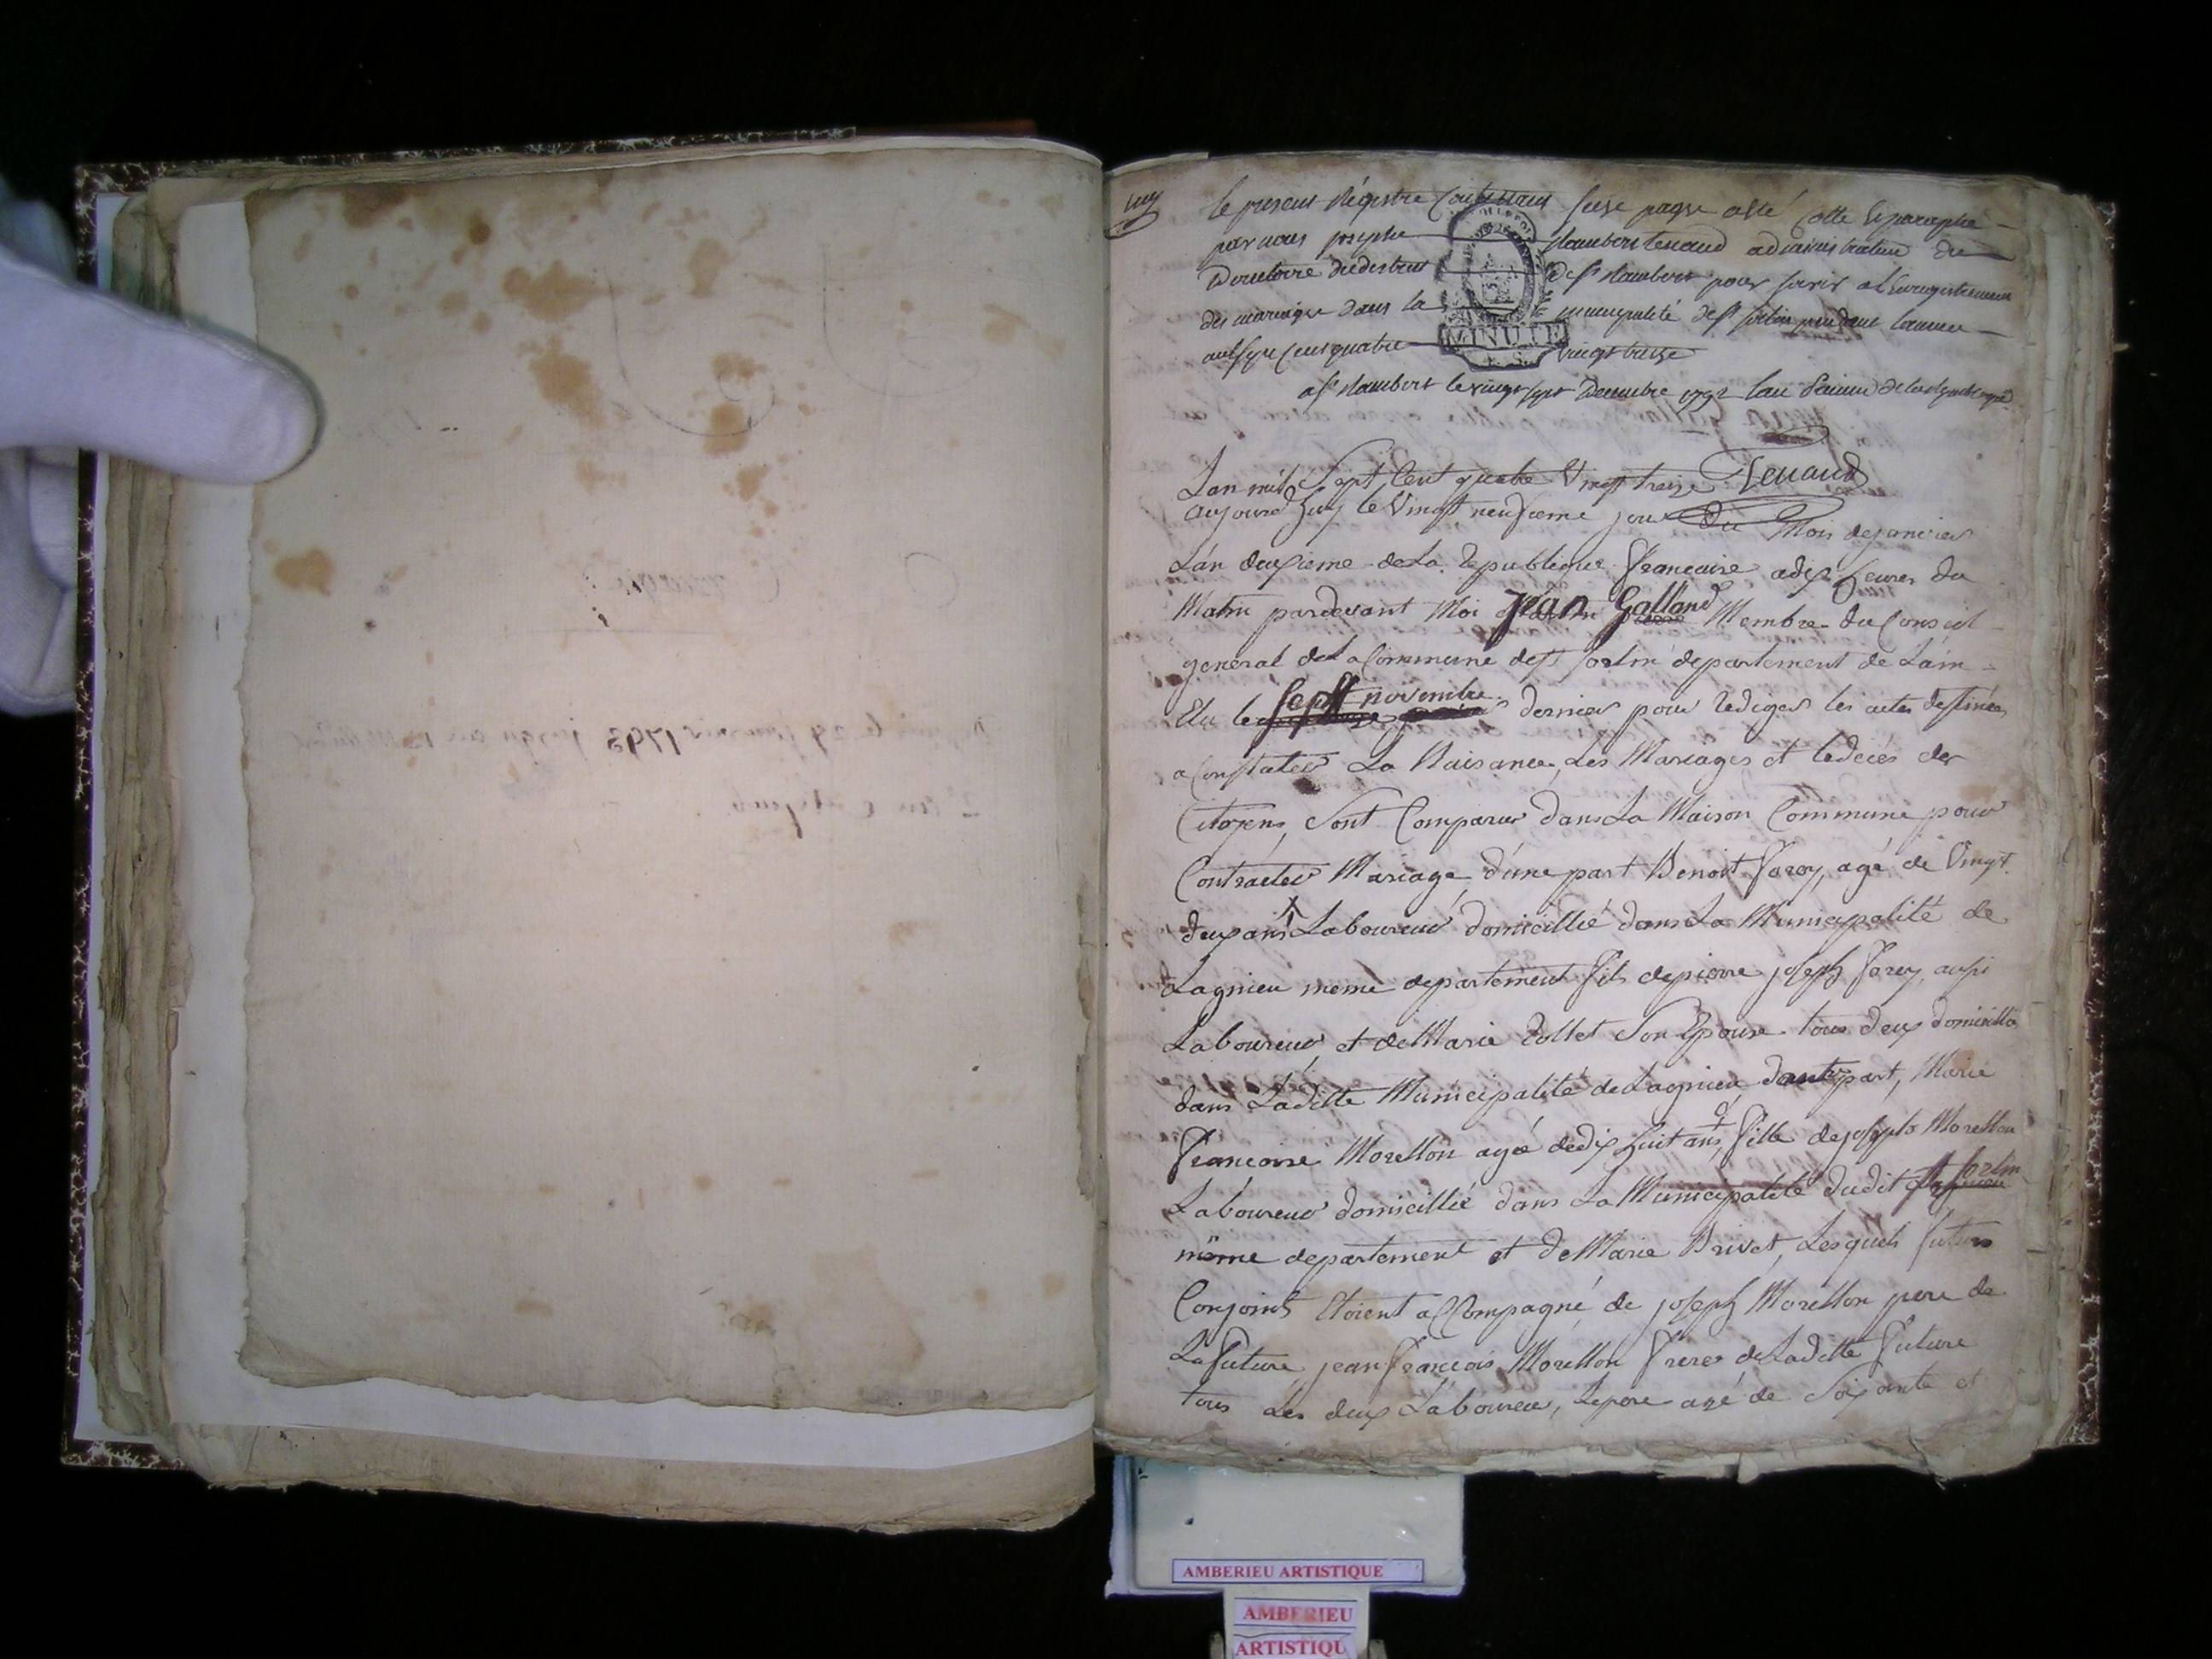 le present Régistre contenant seise pages a été cotté et paraphé
par nous josephe Rambert tenand administrateur du
Directoire du district de St Rambert pour servir a l'enregistrement
des mariages dans la municipalité de St Sorlin pendant l'année
mil sept cent quatre vingt treize
a St Rambert le vingt sept Decembre 1792 l'an premier de la Republique
MINUTE
Tenand
Lan mil Sept Cent quatre Vingt treize
aujourd'huy le Vingt neufieme jour du Mois de janvier
L'an deuxieme de La Republique Francaise a dix heures du
Matin pardevant Moi Jean Galland Membre du Conseil
general de La Commune de St Sorlin departement de L'ain
Elu le sept novembre dernier pour Rediger les actes destinées
a Constater La Naisance, Les Mariages et le décés des
Citoyens, Sont Comparus dans La Maison Commune pour
Contracter Mariage d'une part Benoit Farey, agé de Vingt
deux ans Laboureur domicillié dans La Municipalité de
Lagnieu meme departement fils de pierre joseph Farey, aussi
Laboureur et de Marie Collet Son Epouse tous deux domicilliés
dans Laditte Municipalité de Lagnieu, d'autre part, Marie
Francoise Morellon agée de dix huit ans, fille de joseph Morellon
Laboureur domicillié dans La Municipalité dudit St Sorlin
même departement et de Marie Brivet, Lesquels futurs
Conjoints Etoient accompagné de joseph Morellon pere de
La future, jean Francois Morellon frere de Laditte future
tous Les deux Laboureur, Le pere agé de Soixante et
AMBERIEU ARTISTIQUE
AMBERIEU
ARTISTIQU